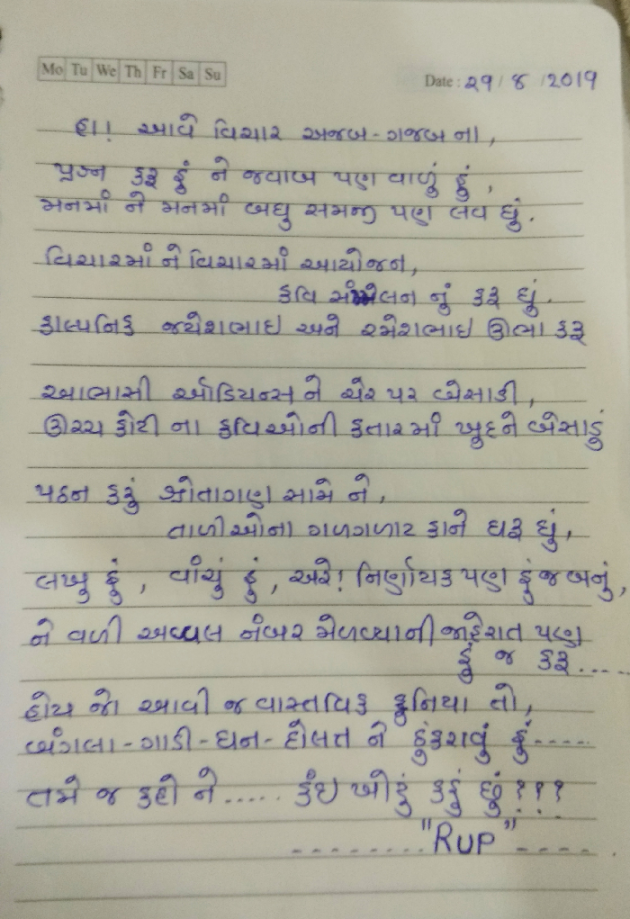 Mo Tu We Th Fr Sa Su
Date : 29/8/2019
હા! આવે વિચાર અજબ-ગજબ ના,
પ્રશ્ન કરૂ હું ને જવાબ પણ વાળું હું,
મનમાં ને મનમાં બધુ સમજી પણ લવ છું.
વિચારમાં ને વિચારમાં આયોજન,
કવિ સંમેલન નું કરૂ છું.
કાલ્પનિક જયેશભાઇ અને રમેશભાઇ ઊભા કરૂ
આભાસી ઓડિયન્સ ને ચેર પર બેસાડી,
ઊચ્ચ કોટી ના કવિઓની કતારમાં ખુદને બેસાડું
પઠન કરું શ્રોતાગણ સામે ને,
તાળીઓના ગળગળાટ કાને ધરૂ છું,
લખુ હું, વાંચું હું, અરે! નિર્ણાયક પણ હું જ બનું,
ને વળી અવ્વલ નંબર મેળવ્યાની જાહેરાત પણ
હું જ કરૂ....
હોય જો આવી જ વાસ્તવિક દુનિયા તો,
બંગલા-ગાડી-ધન-દોલત ને ઠુંકરાવું હું-----
તમે જ કહો ને ..... કંઇ ખોટું કહું છું???
--------"RUP"-----